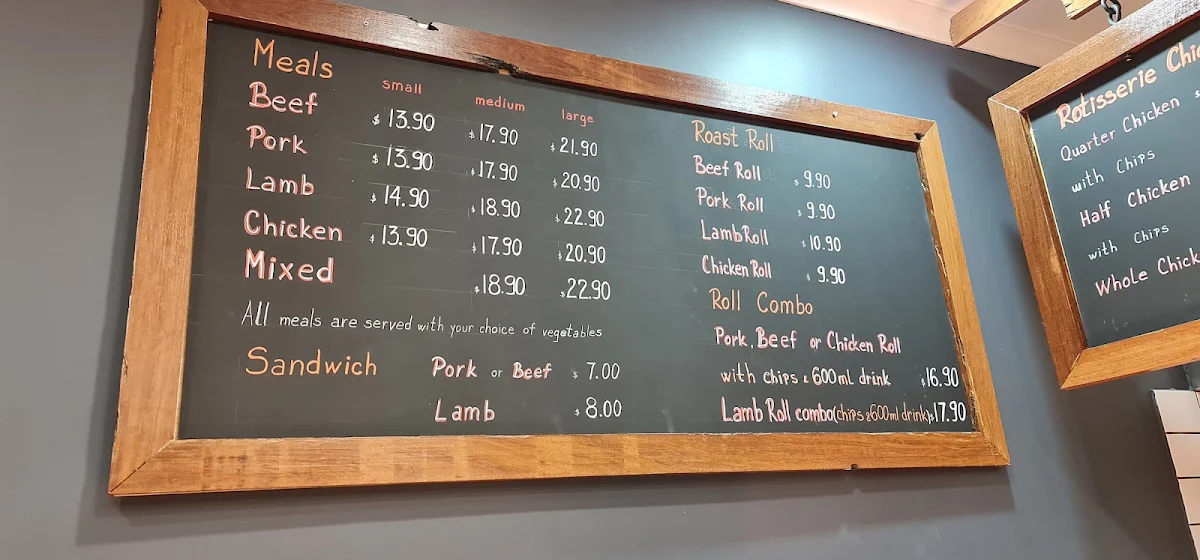 Meals
small medium large
Beef $13.90 $17.90 $21.90
Pork $13.90 $17.90 $20.90
Lamb $14.90 $18.90 $22.90
Chicken $13.90 $17.90 $20.90
Mixed $18.90 $22.90
All meals are served with your choice of vegetables
Sandwich Pork or Beef $7.00
Lamb $8.00
Roast Roll
Beef Roll $9.90
Pork Roll $9.90
Lamb Roll $10.90
Chicken Roll $9.90
Roll Combo
Pork, Beef or Chicken Roll
with chips & 600mL drink $16.90
Lamb Roll combo(chips &600ml drink)$17.90
Rotisserie
Quarter Chicken $
with Chips
Half Chicken
with Chips
Whole